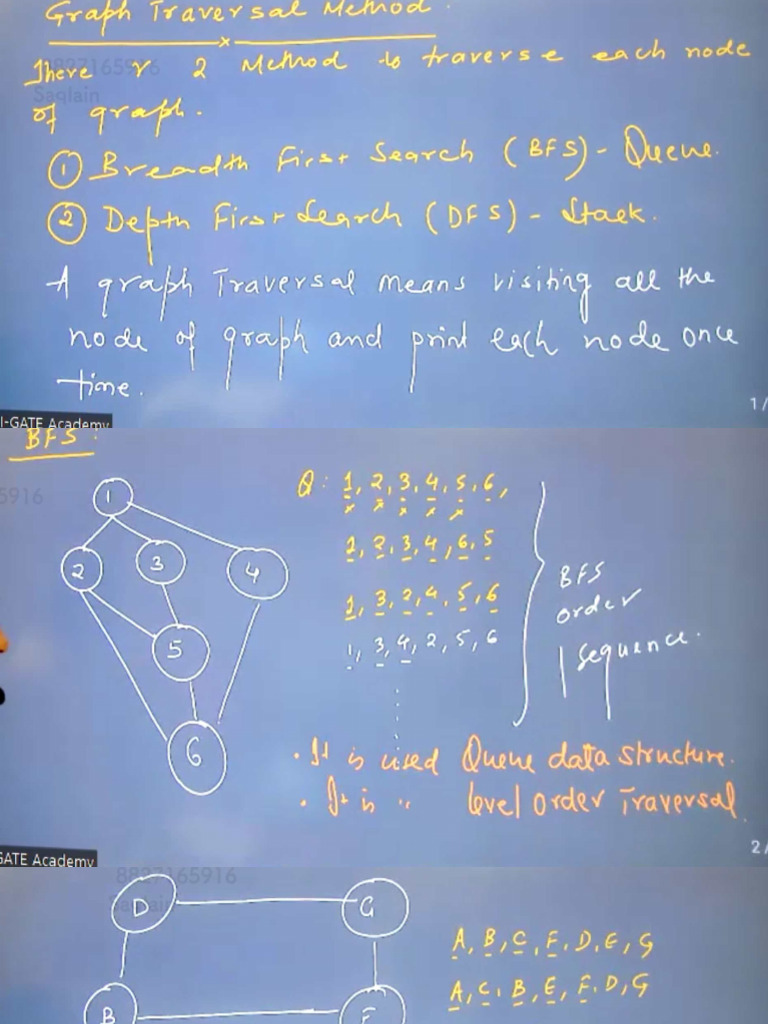 Graph Traversal Method.
There r 2 Method to traverse each node
of graph.
① Breadth First Search (BFS) - Queue.
② Depth First Search (DFS) - Stack.
A graph Traversal means visiting all the
node of graph and print each node once
time.
I-GATE Academy
1/
BFS:
5916
1
2
3
4
5
6
Q: 1, 2, 3, 4, 5, 6,
1, 2, 3, 4, 6, 5
1, 3, 2, 4, 5, 6
1, 3, 4, 2, 5, 6
BFS
order
| sequence.
· It is used Queue data structure.
· It is " level order Traversal.
GATE Academy
2/
8827165916
Saqlain
D
G
B
F
A, B, C, F, D, E, G
A, C, B, E, F, D, G